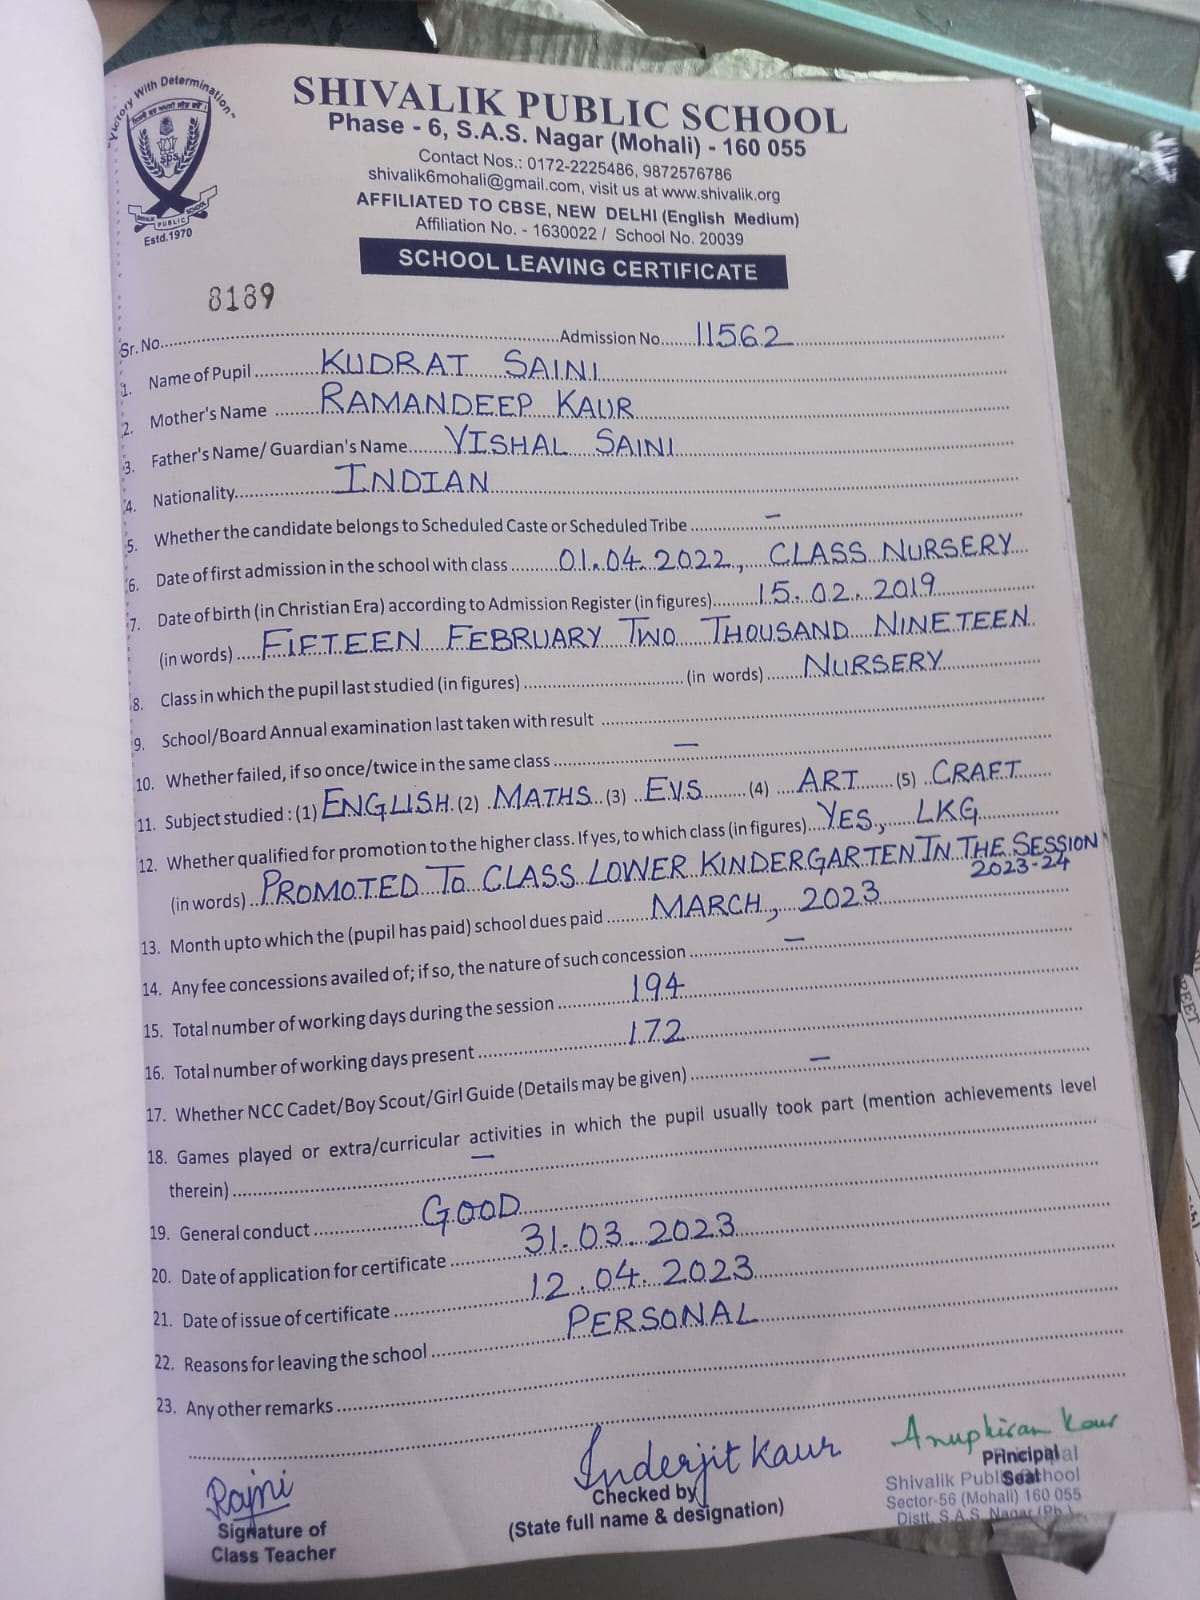 "Victory With Determination"
SPS
SHIVALIK PUBLIC SCHOOL
Estd.1970
SHIVALIK PUBLIC SCHOOL
Phase - 6, S.A.S. Nagar (Mohali) - 160 055
Contact Nos.: 0172-2225486, 9872576786
shivalik6mohali@gmail.com, visit us at www.shivalik.org
AFFILIATED TO CBSE, NEW DELHI (English Medium)
Affiliation No. - 1630022 / School No. 20039
SCHOOL LEAVING CERTIFICATE
8189
Sr. No. Admission No. 11562
1. Name of Pupil KUDRAT SAINI
2. Mother's Name RAMANDEEP KAUR
3. Father's Name/ Guardian's Name VISHAL SAINI
4. Nationality INDIAN
5. Whether the candidate belongs to Scheduled Caste or Scheduled Tribe –
6. Date of first admission in the school with class 01.04.2022, CLASS NURSERY
7. Date of birth (in Christian Era) according to Admission Register (in figures) 15.02.2019
(in words) FIFTEEN FEBRUARY TWO THOUSAND NINETEEN
8. Class in which the pupil last studied (in figures) (in words) NURSERY
9. School/Board Annual examination last taken with result
10. Whether failed, if so once/twice in the same class –
11. Subject studied : (1) ENGLISH (2) MATHS (3) EVS (4) ART (5) CRAFT
12. Whether qualified for promotion to the higher class. If yes, to which class (in figures) YES, LKG
(in words) PROMOTED TO CLASS LOWER KINDERGARTEN IN THE SESSION
2023-24
13. Month upto which the (pupil has paid) school dues paid MARCH, 2023
14. Any fee concessions availed of; if so, the nature of such concession –
15. Total number of working days during the session 194
16. Total number of working days present 172
17. Whether NCC Cadet/Boy Scout/Girl Guide (Details may be given) –
18. Games played or extra/curricular activities in which the pupil usually took part (mention achievements level
therein) –
19. General conduct GOOD
20. Date of application for certificate 31.03.2023
21. Date of issue of certificate 12.04.2023
22. Reasons for leaving the school PERSONAL
23. Any other remarks
Rajni
Signature of
Class Teacher
Inderjit Kaur
Checked by
(State full name & designation)
Anupkiran Kaur
Principal
Seal
Principal
Shivalik Public School
Sector-56 (Mohali) 160 055
Distt. S.A.S. Nagar (Pb.)